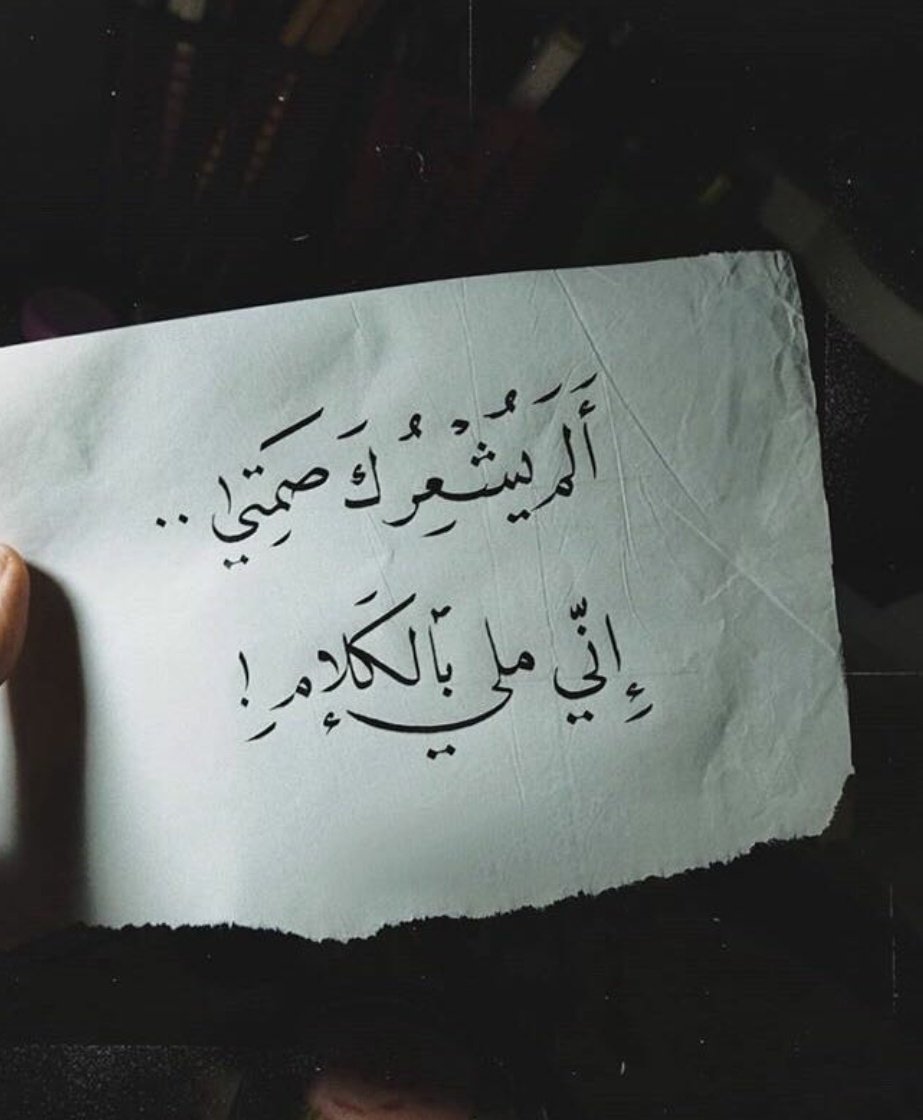 أَلَم يُشْعِرُكَ صَمتِي ! ..
إِنّي ملي بٱلكَلامِ !